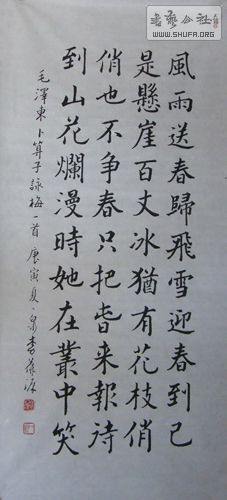 書藝公社
WWW.SHUFA.ORG
風雨送春歸飛雪迎春到已
是懸崖百丈冰猶有花枝俏
俏也不争春只把春来報待
到山花爛漫時她在叢中笑
毛澤東卜算子詠梅一首庚寅夏泉李